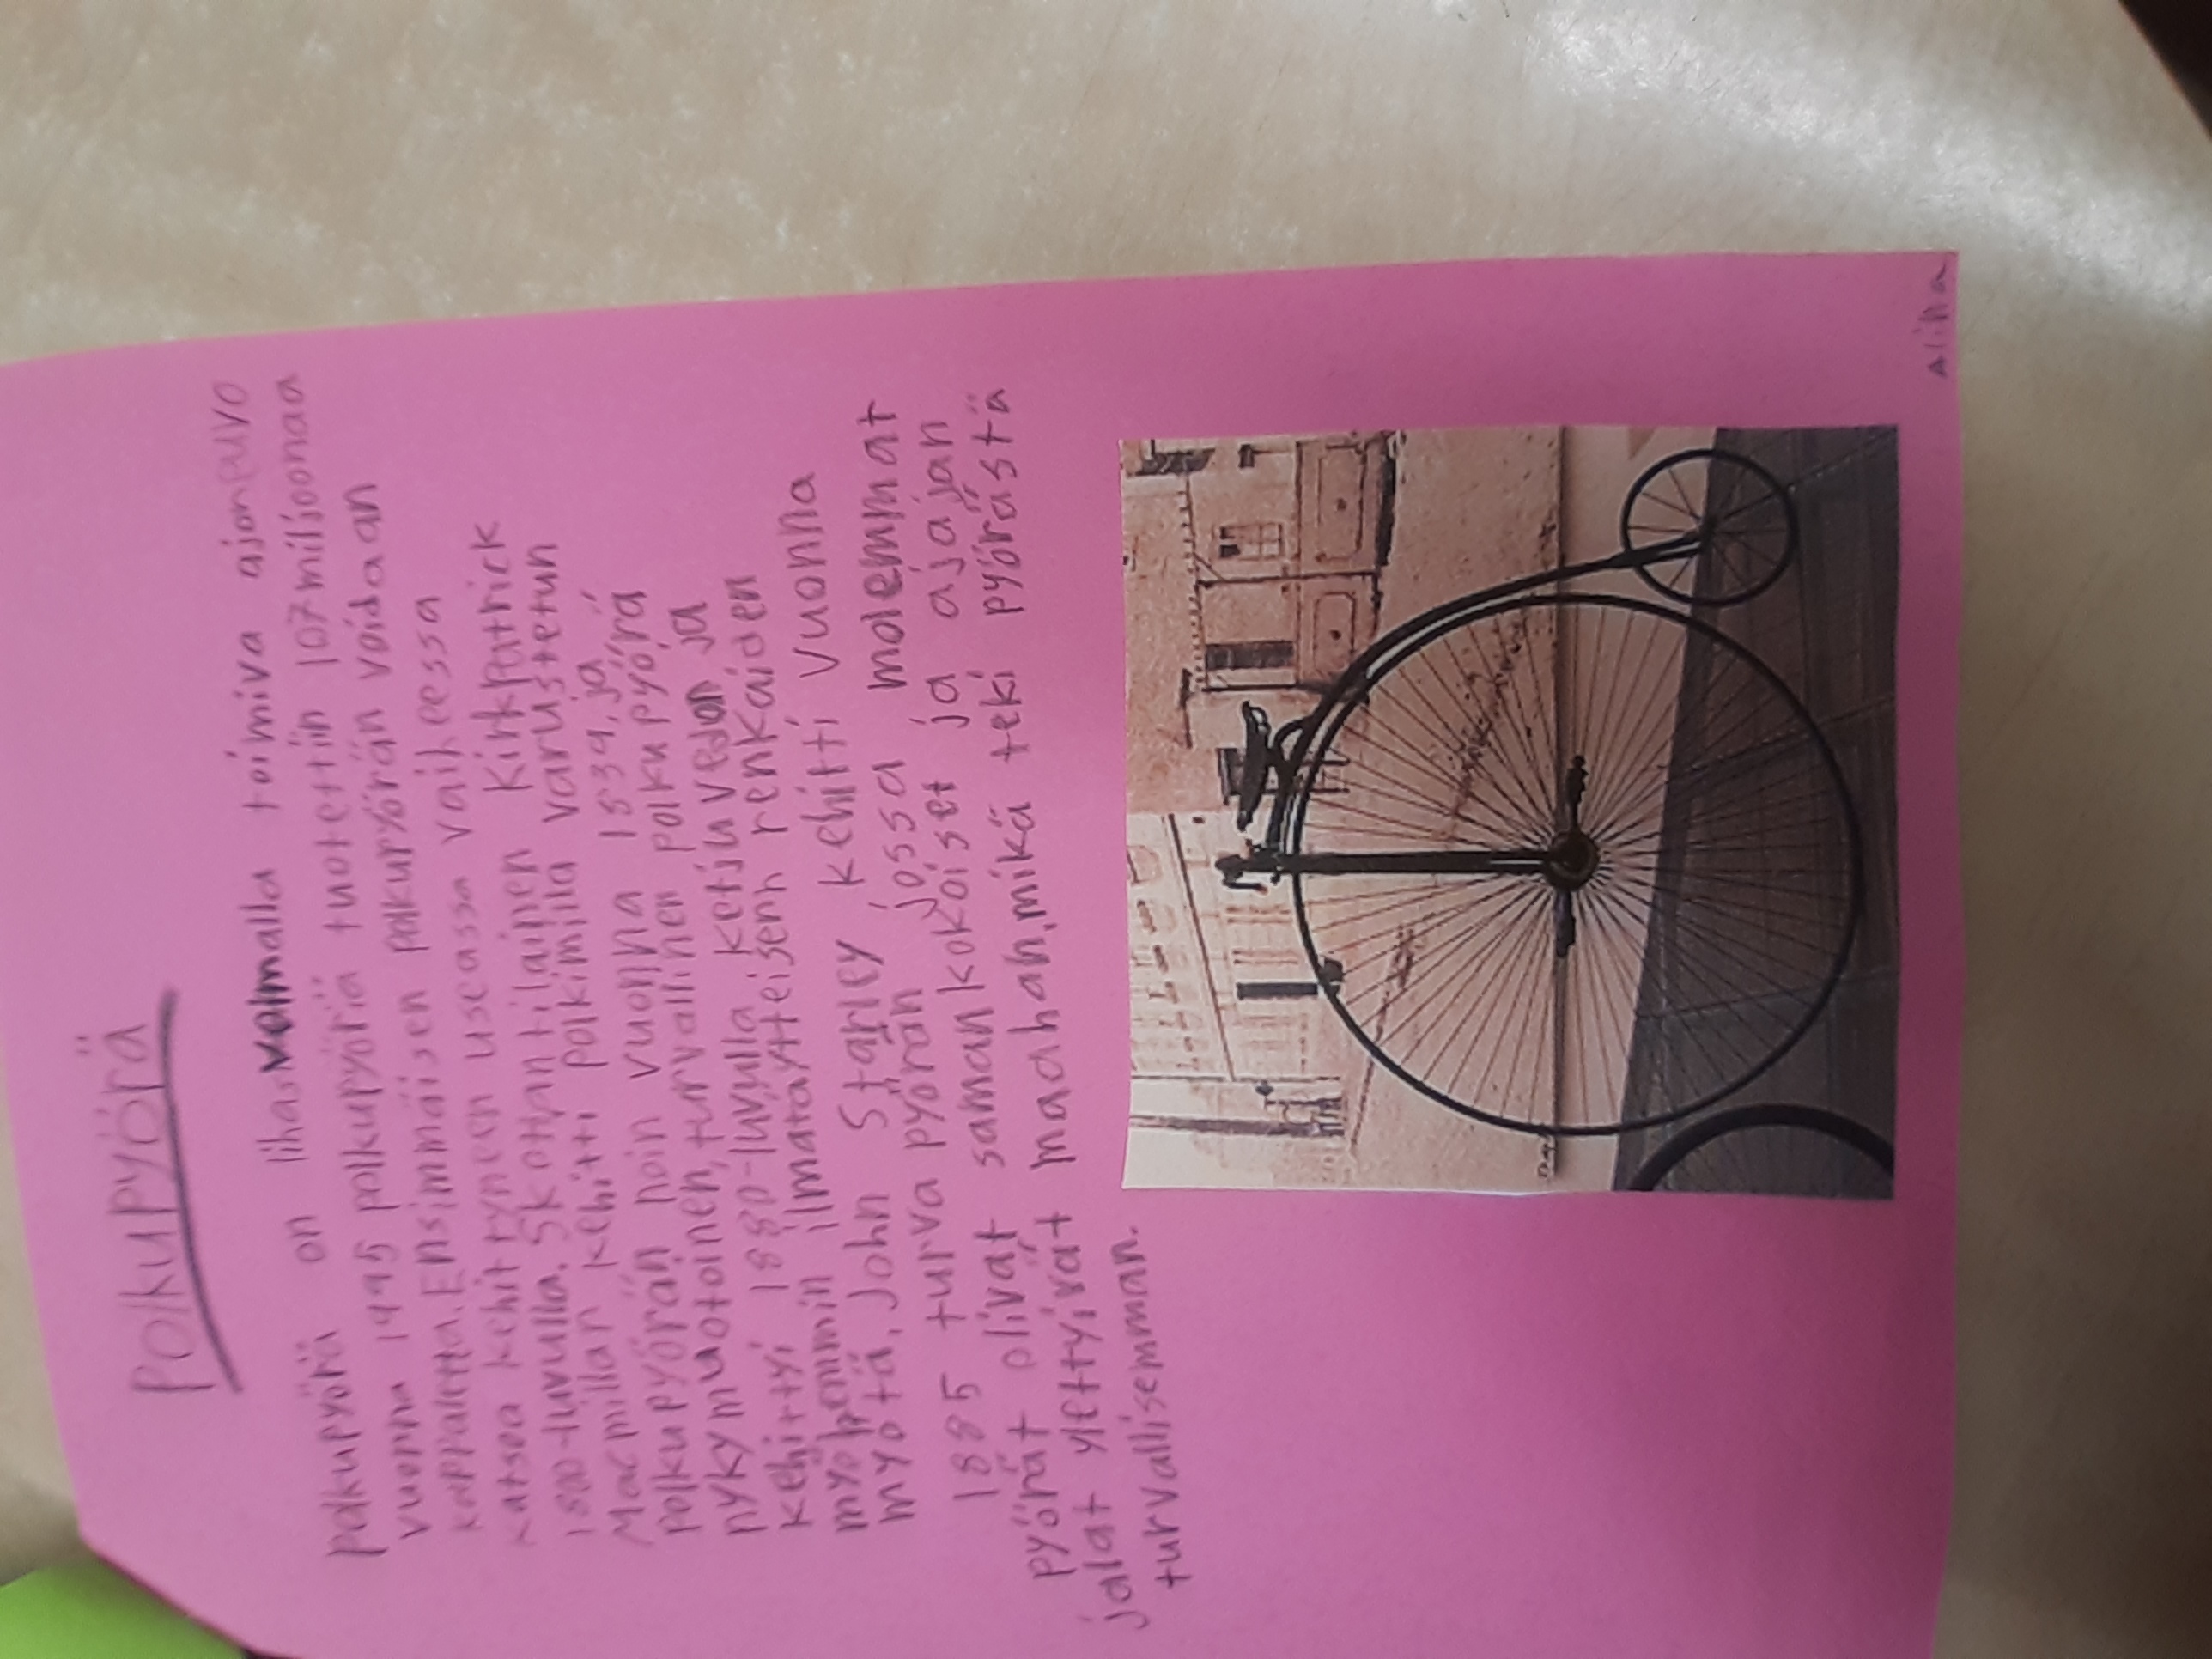 Polkupyörä
polkupyörä on lihasvoimalla toimiva ajoneuvo
vuonna 1995 polkupyöriä tuotettiin 107 miljoonaa
kappaletta. Ensimmäisen polkupyörän voidaan
katsoa kehittyneen useassa vaiheessa
1800-luvulla. Skotlantilainen Kirkpatrick
Macmillan kehitti polkimilla varustetun
polkupyörän noin vuonna 1839, ja
nykymuotoinen, turvallinen polkupyörä
kehittyi 1880-luvulla ketjuvedon ja
myöhemmin ilmatäytteisenn renkaiden
myötä. John Starley kehitti vuonna
1885 turva pyörän jossa molemmat
pyörät olivat samankokoiset ja ajajan
jalat ylettyivät maahan, mikä teki pyörästä
turvallisemman.
Alina